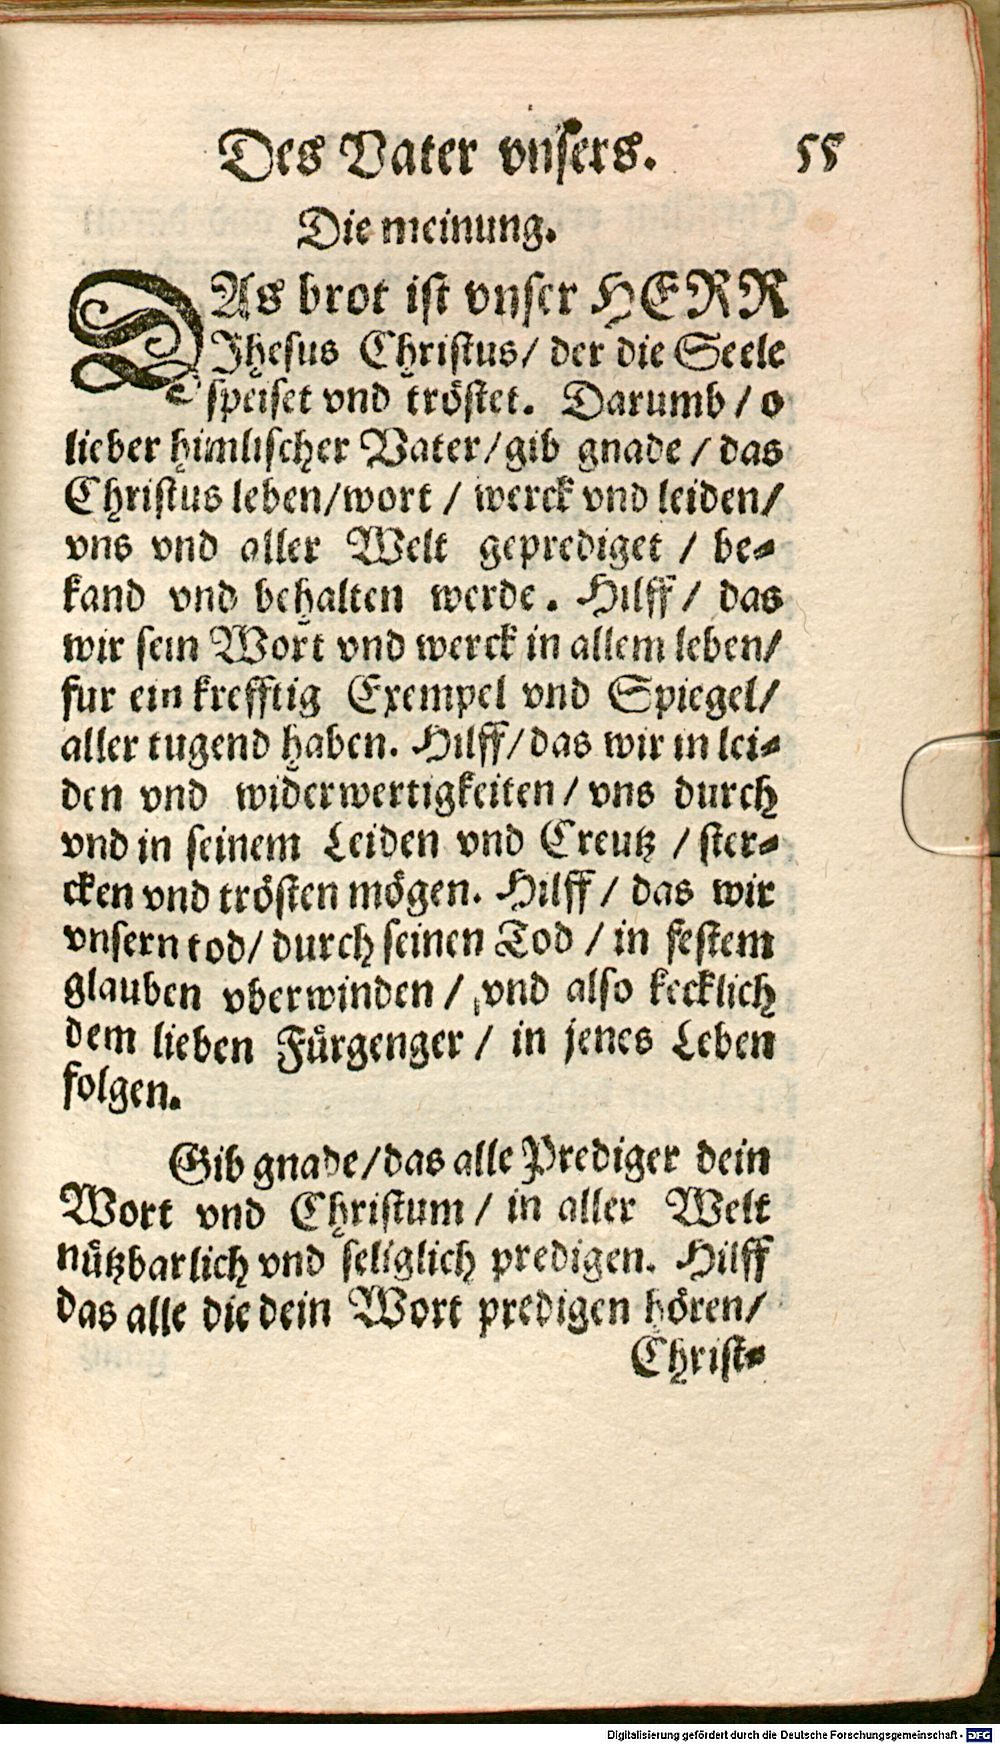 Des Vater vnsers. 55
Die meinung.
DAs brot ist vnser HERR
Jhesus Christus/ der die Seele
speiset vnd tröstet. Darumb / o
lieber himlischer Vater/gib gnade / das
Christus leben/wort / werck vnd leiden/
vns vnd aller Welt geprediget / be-
kand vnd behalten werde. Hilff / das
wir sein Wort vnd werck in allem leben/
fur ein krefftig Exempel vnd Spiegel/
aller tugend haben. Hilff/das wir in lei-
den vnd widerwertigkeiten / vns durch
vnd in seinem Leiden vnd Creutz / ster-
cken vnd trösten mögen. Hilff / das wir
vnsern tod/ durch seinen Tod / in festem
glauben vberwinden / vnd also kecklich
dem lieben Fürgenger / in jenes Leben
folgen.
Gib gnade/das alle Prediger dein
Wort vnd Christum / in aller Welt
nützbarlich vnd seliglich predigen. Hilff
das alle die dein Wort predigen hören/
Christ-
Digitalisierung gefördert durch die Deutsche Forschungsgemeinschaft - DFG